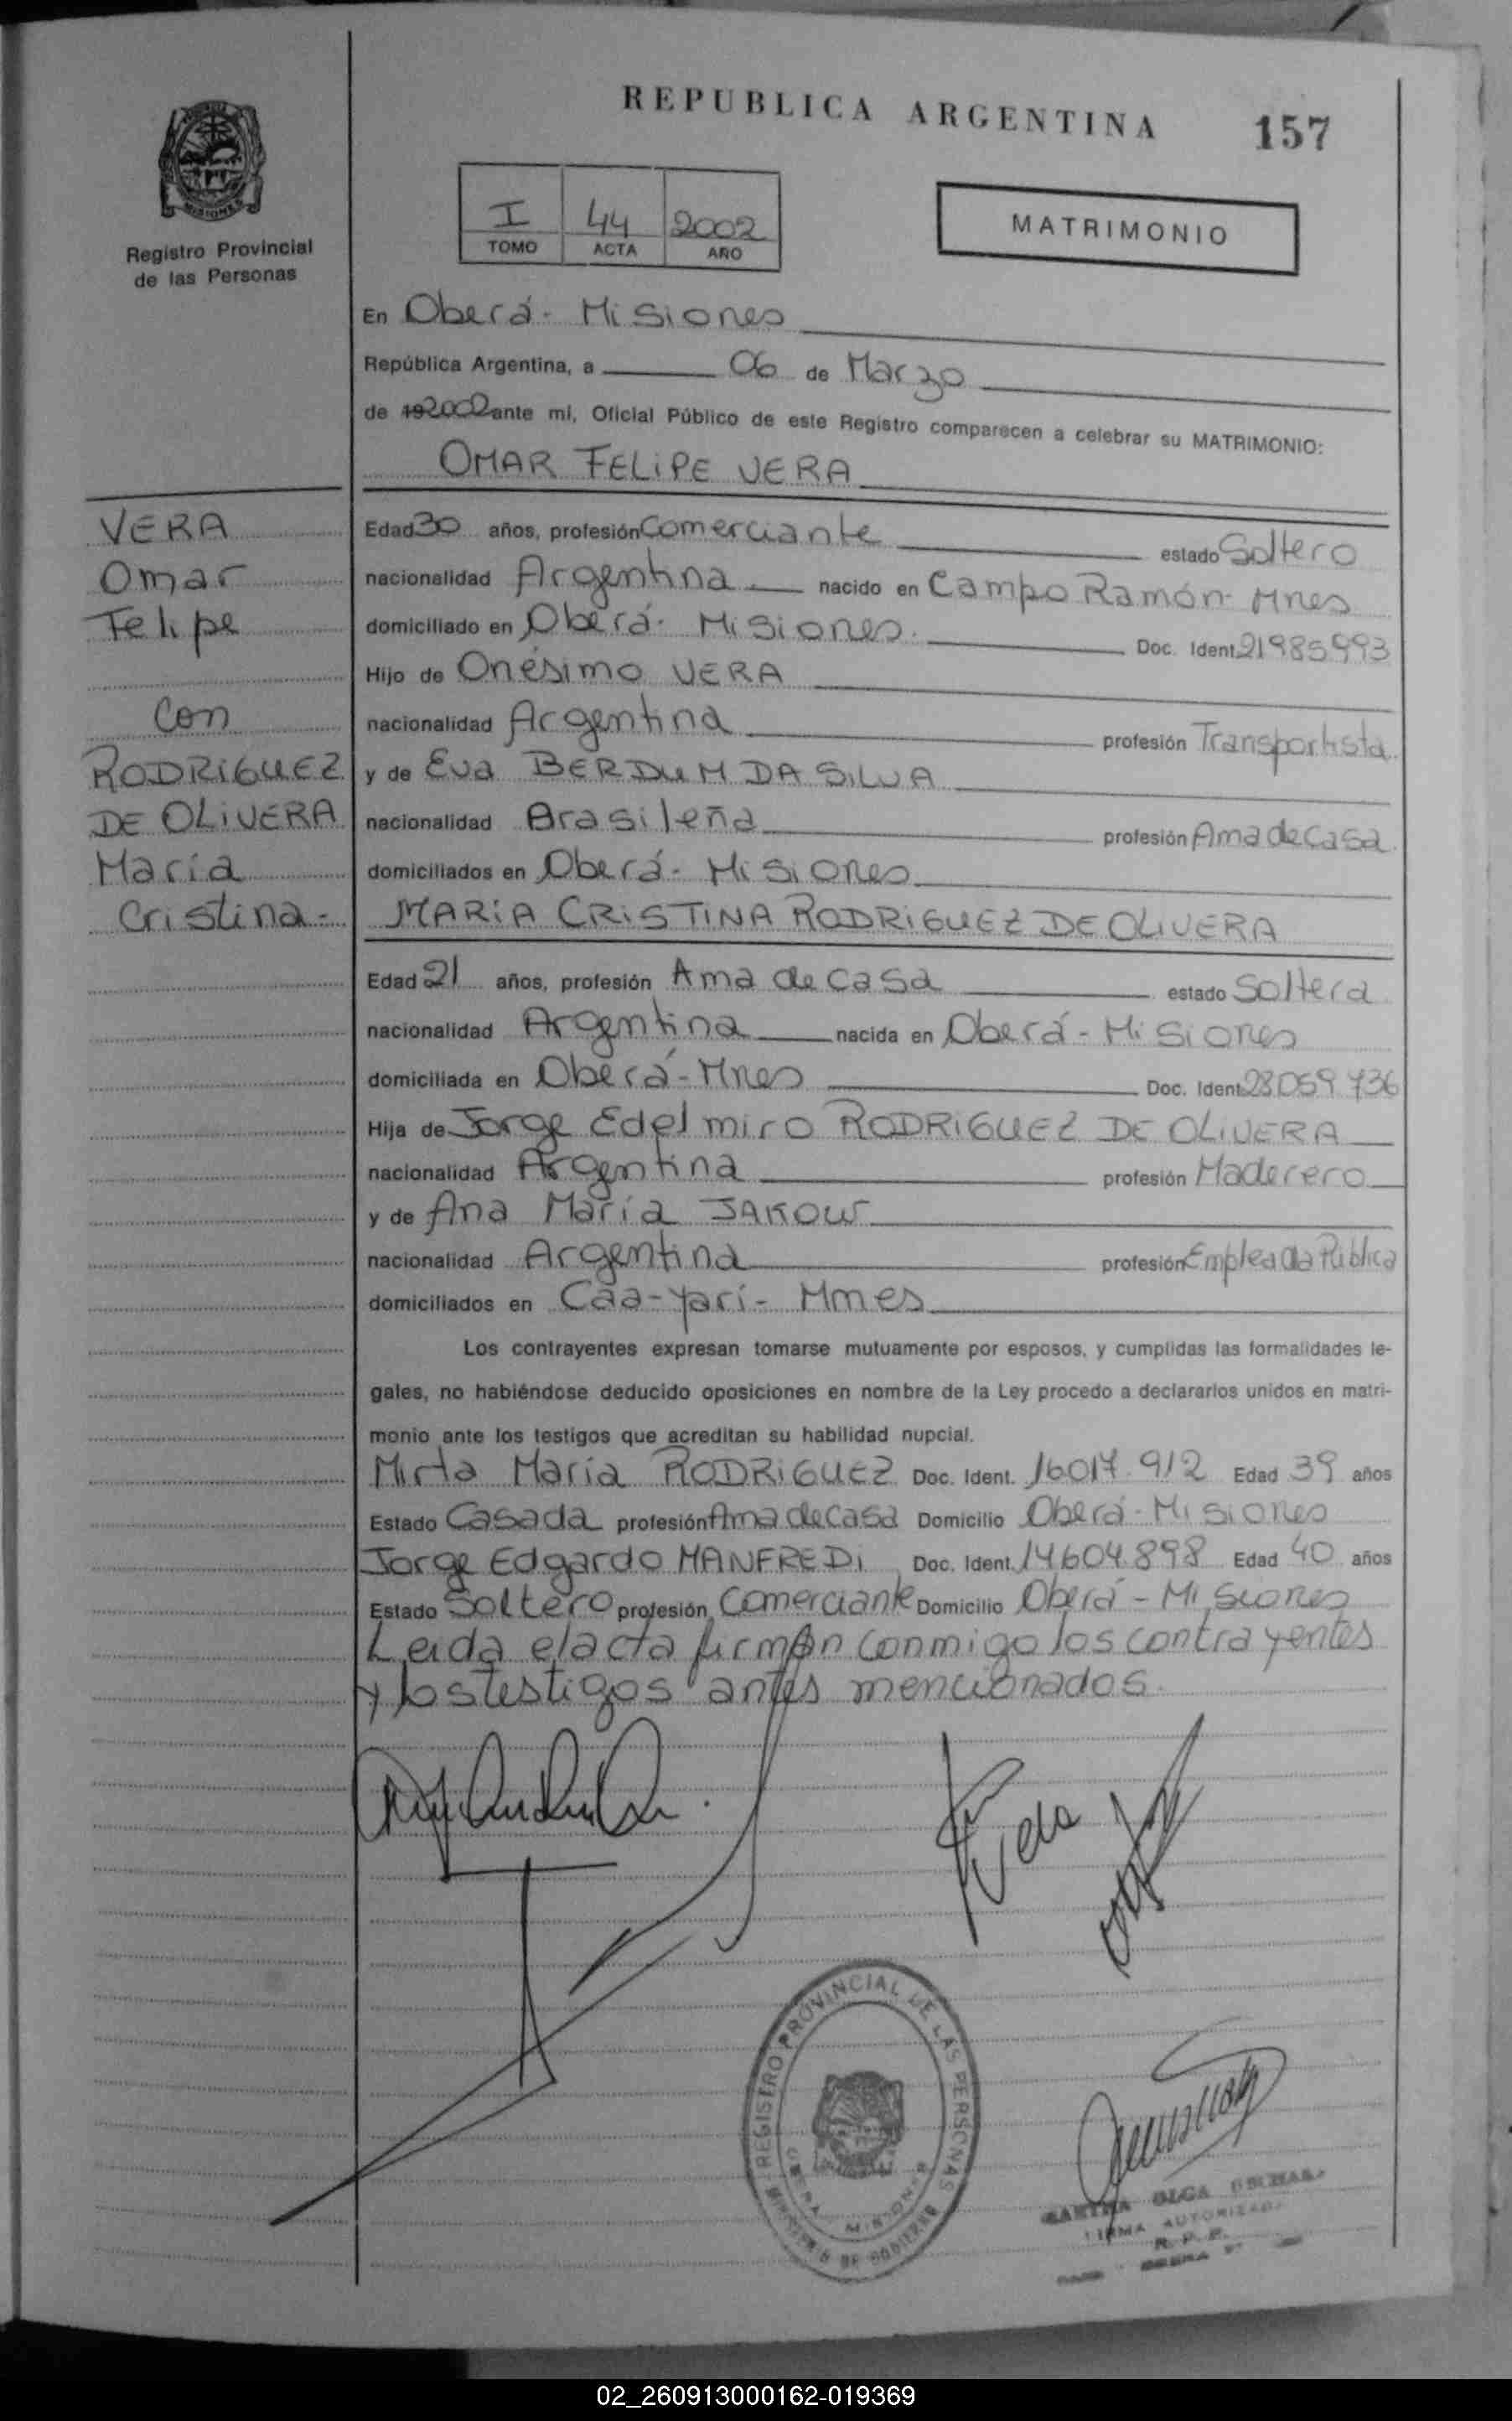 REPUBLICA ARGENTINA
157
MISIONES
Registro Provincial
de las Personas
I 44 2002
TOMO ACTA AÑO
MATRIMONIO
En Oberá - Misiones
República Argentina, a 06 de Marzo
de 192002 ante mí, Oficial Público de este Registro comparecen a celebrar su MATRIMONIO:
OMAR FELIPE VERA
VERA
Omar
Felipe
Con
RODRIGUEZ
DE OLIVERA
María
Cristina-
Edad 30 años, profesión Comerciante estado Soltero
nacionalidad Argentina nacido en Campo Ramón- Mnes
domiciliado en Oberá- Misiones. Doc. Ident. 21985993
Hijo de Onésimo VERA
nacionalidad Argentina profesión Transportista
y de Eva BERDUM DA SILVA
nacionalidad Brasileña profesión Ama de Casa
domiciliados en Oberá- Misiones
MARIA CRISTINA RODRIGUEZ DE OLIVERA
Edad 21 años, profesión Ama de Casa estado Soltera
nacionalidad Argentina nacida en Oberá - Misiones
domiciliada en Oberá - Mnes Doc. Ident. 28059736
Hija de Jorge Edelmiro RODRIGUEZ DE OLIVERA
nacionalidad Argentina profesión Maderero
y de Ana María JAKOW
nacionalidad Argentina profesión Empleada Pública
domiciliados en Cáa-Yarí- Mnes
Los contrayentes expresan tomarse mutuamente por esposos, y cumplidas las formalidades le-
gales, no habiéndose deducido oposiciones en nombre de la Ley procedo a declararlos unidos en matri-
monio ante los testigos que acreditan su habilidad nupcial.
Mirta María RODRIGUEZ Doc. Ident. 16017.912 Edad 39 años
Estado Casada profesión Ama de Casa Domicilio Oberá - Misiones
Jorge Edgardo MANFREDI Doc. Ident. 14604.898 Edad 40 años
Estado Soltero profesión Comerciante Domicilio Oberá - Misiones
Leida el acta firman conmigo los contrayentes
y los testigos antes mencionados.
REGISTRO PROVINCIAL DE LAS PERSONAS
OBERA MISIONES
MINISTERIO DE GOBIERNO
OLGA
FIRMA AUTORIZADA
R. P. P.
02_260913000162-019369